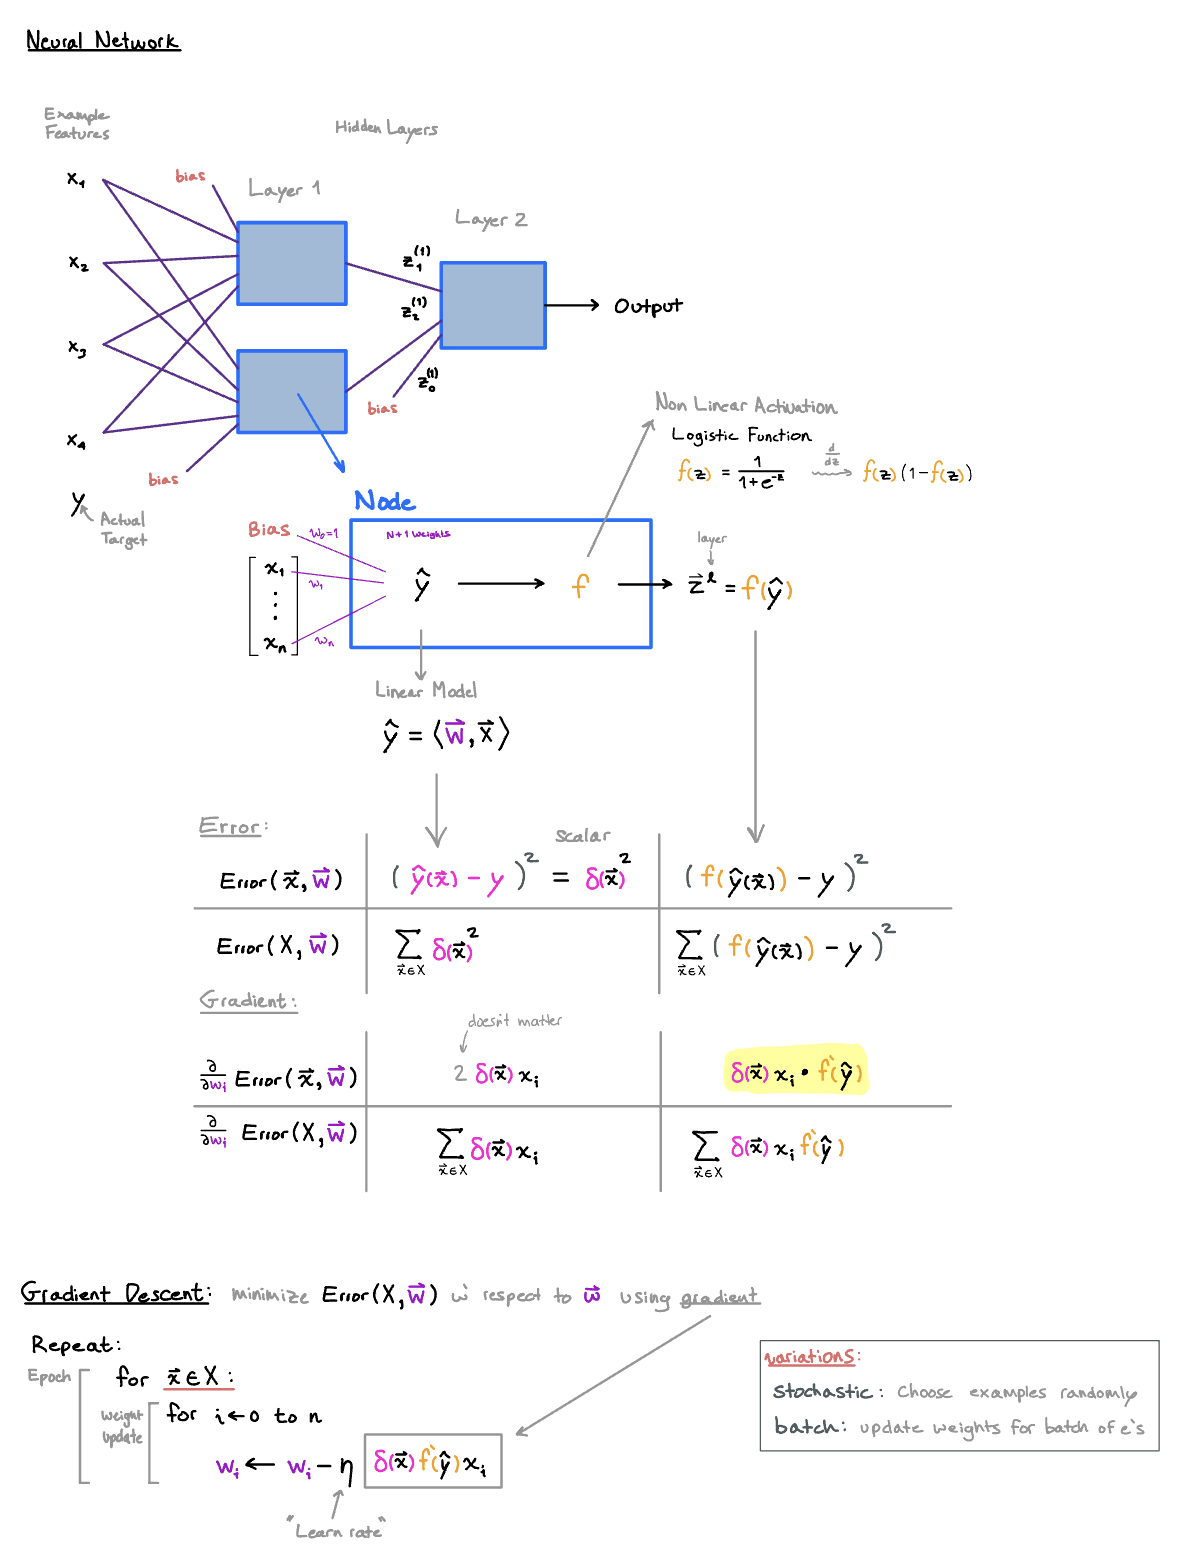 Neural Network
Example
Features
Hidden Layers
x₁
bias
Layer 1
Layer 2
x₂
z₁⁽¹⁾
z₂⁽¹⁾
Output
x₃
z₀⁽¹⁾
bias
x₄
bias
Non Linear Activation
Logistic Function
f(z) = 1/(1+e^-z) d/dz f(z)(1-f(z))
y
Actual
Target
Node
Bias
w₀=1
N+1 weights
layer
x₁
w₁
ŷ
f
z⃗^l = f(ŷ)
⋮
xₙ
wₙ
Linear Model
ŷ = ⟨w⃗, x⃗⟩
Error:
scalar
Error(x⃗, w⃗)
(ŷ(x⃗) - y)² = δ(x⃗)²
(f(ŷ(x⃗)) - y)²
Error(X, w⃗)
∑ x⃗∈X δ(x⃗)²
∑ x⃗∈X (f(ŷ(x⃗)) - y)²
Gradient:
doesn't matter
∂/∂wᵢ Error(x⃗, w⃗)
2 δ(x⃗) xᵢ
δ(x⃗) xᵢ • f`(ŷ)
∂/∂wᵢ Error(X, w⃗)
∑ x⃗∈X δ(x⃗) xᵢ
∑ x⃗∈X δ(x⃗) xᵢ f`(ŷ)
Gradient Descent: minimize Error(X, w⃗) w` respect to w⃗ using gradient
Repeat:
Epoch
for x⃗ ∈ X :
weight
update
for i ← 0 to n
wᵢ ← wᵢ - η δ(x⃗) f`(ŷ) xᵢ
"Learn rate"
variations:
stochastic: Choose examples randomly
batch: update weights for batch of e`s